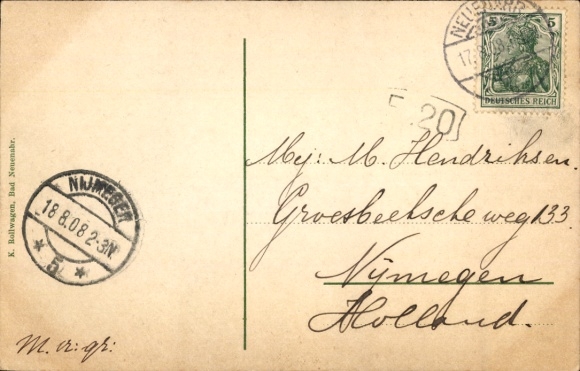 NEUENAHR
17.8.08
5 5
DEUTSCHES REICH
20
Mej: M. Hendriksen.
Groesbeetsche weg 133.
Nijmegen
Holland.
NIJMEGEN
18.8.08 2-3N
* 5 *
K. Rollwagen, Bad Neuenahr.
M. vr: gr: